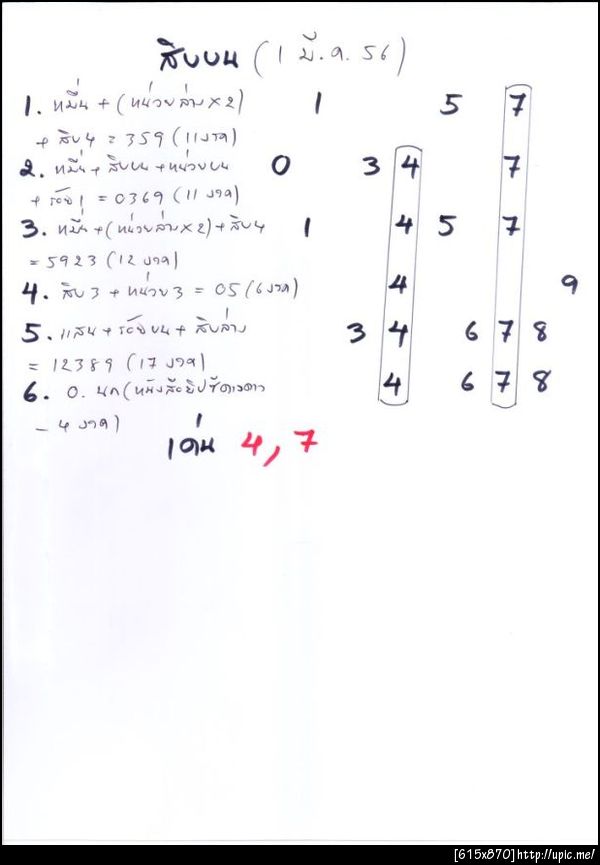 สิบบน (1 มี.ค. 56)
1. หมื่น + (หน่วยล่าง×2) 1 5 7
+ สิบ4 = 359 (11งวด)
2. หมื่น + สิบบน + หน่วยบน 0 3 4 7
+ ร้อย1 = 0369 (11 งวด)
3. หมื่น + (หน่วยล่าง×2) + สิบ4 1 4 5 7
= 5923 (12 งวด)
4. สิบ3 + หน่วย3 = 05 (6งวด) 4 9
5. แสน + ร้อยบน + สิบล่าง 3 4 6 7 8
= 12389 (17 งวด)
6. อ. นก (หนังสือยิปซีดาวดาว 4 6 7 8
- 4 งวด)
เด่น 4, 7
[615x870]http://upic.me/